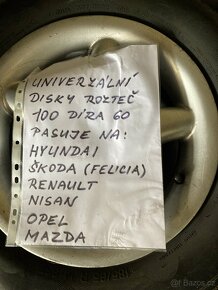 UNIVERZÁLNÍ
DISKY ROZTEČ
100 DÍRA 60
PASUJE NA:
HYUNDAI
ŠKODA (FELICIA)
RENAULT
NISAN
OPEL
MAZDA